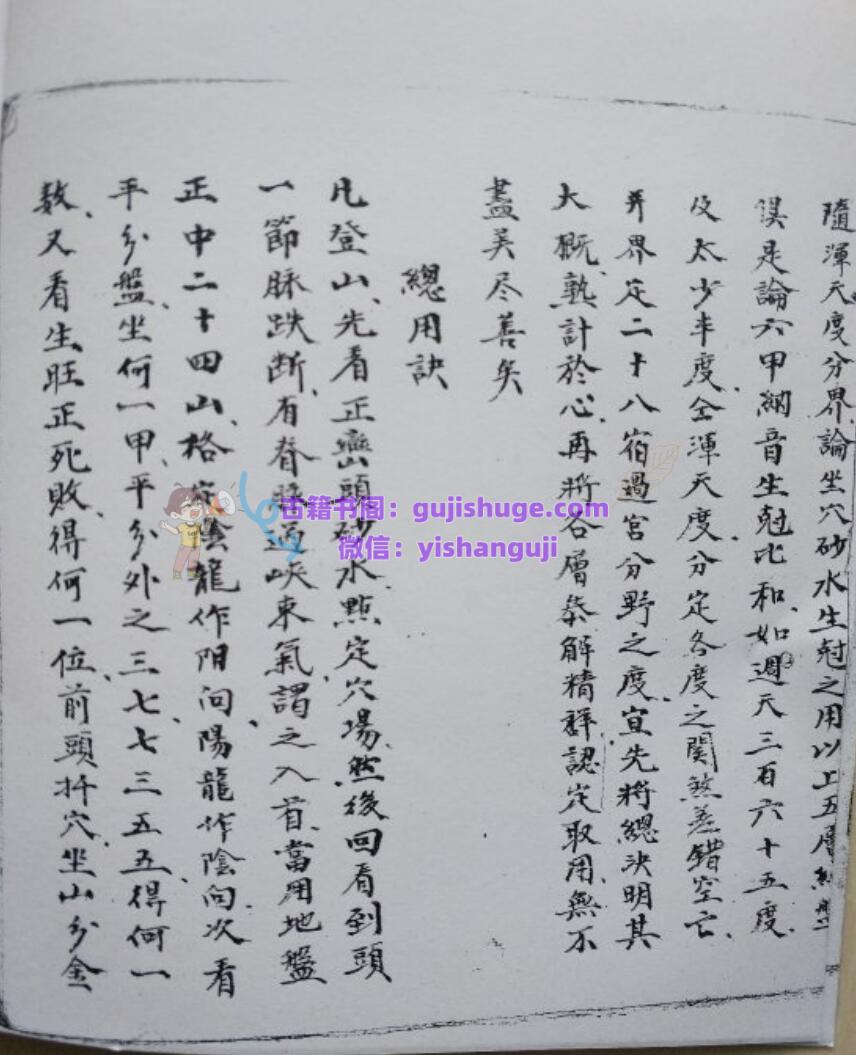 隨渾天度分界論坐穴砂水生尅之用以上五層
俱是論六甲納音生尅比和如週天三百六十五度
及太少率度全渾天度分定各度之關煞差錯空亡
并界定二十八宿過宮分野之度宜先將總決明其
大概熟計於心再將各層叅解精詳認定取用無不
盡美尽善矣
總用訣
凡登山先看正巒頭砂水點定穴場然後回看到頭
一節脉跌断有脊脉過峽束氣謂之入首當用地盤
正中二十四山格定陰龍作阴向陽龍作陰向次看
平分盤坐何一甲平分外之三七七三五五得何一
数又看生旺正死敗得何一位前頭扦穴坐山分金
古籍书阁：gujishuge.com
微信：yishanguji